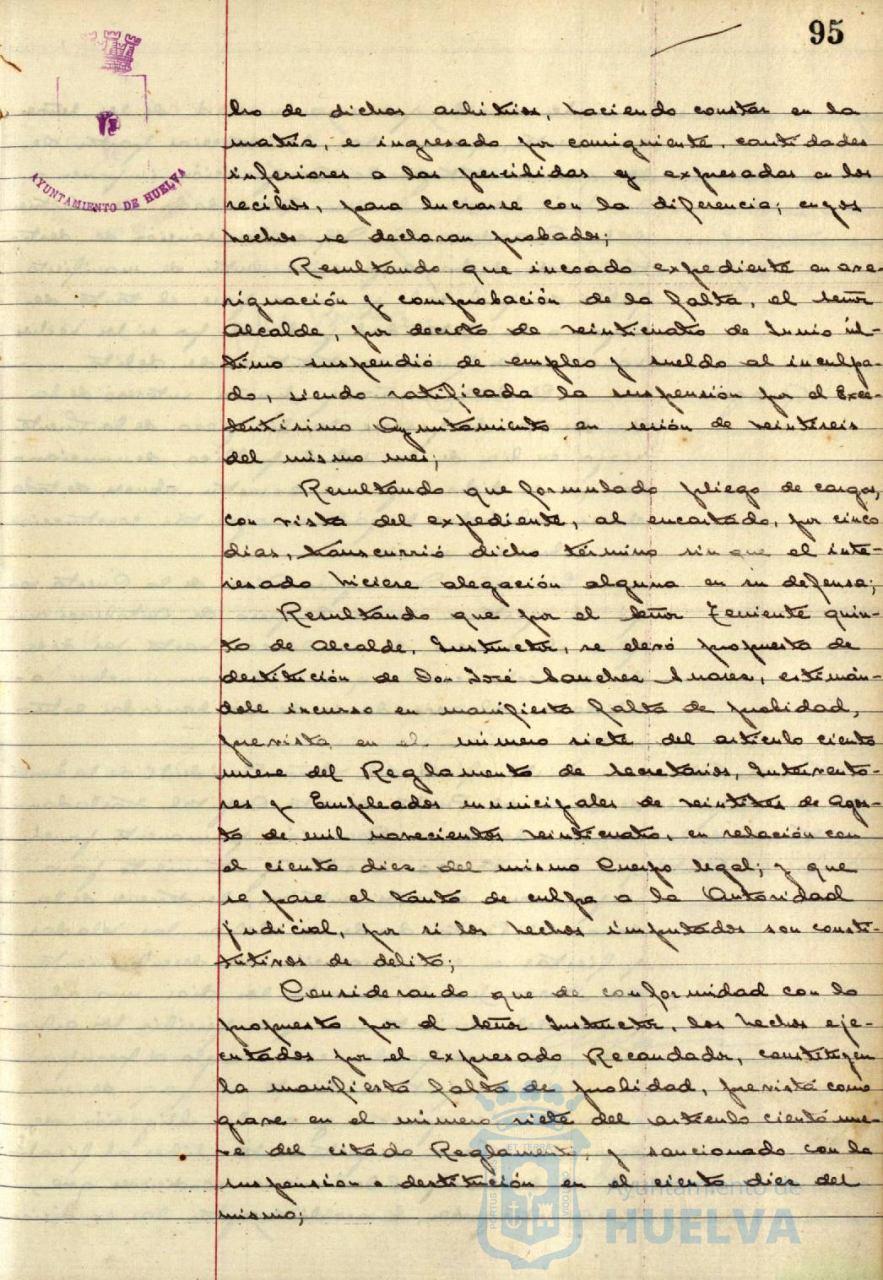 95
AYUNTAMIENTO DE HUELVA
bro de dichos arbitrios, haciendo constar en la
matriz, e ingresado por consiguiente, cantidades
inferiores a las percibidas y expresadas en los
recibos, para lucrarse con la diferencia; cuyos
hechos se declaran probados;
Resultando que incoado expediente en ave-
riguación y comprobación de la falta, el señor
Alcalde, por decreto de veinticuatro de Junio úl-
timo suspendió de empleo y sueldo al inculpa-
do, siendo ratificada la suspensión por el Exce-
lentísimo Ayuntamiento en sesión de veintiseis
del mismo mes;
Resultando que formulado pliego de cargos,
con vista del expediente, al encartado, por cinco
dias, transcurrió dicho término sin que el inte-
resado hiciere alegación alguna en su defensa;
Resultando que por el Señor Teniente quin-
to de Alcalde, Instructor, se elevó propuesta de
destitución de Don José Sanchez Suarez, estimán-
dole incurso en manifiesta falta de probidad,
prevista en el número siete del artículo ciento
nueve del Reglamento de Secretarios, Intervento-
res y Empleados municipales de veintitres de Agos-
to de mil novecientos veinticuatro, en relación con
el ciento diez del mismo Cuerpo legal; y que
se pase el tanto de culpa a la Autoridad
judicial, por si los hechos imputados son consti-
tutivos de delito;
Considerando que de conformidad con lo
propuesto por el Señor Instructor, los hechos eje-
cutados por el expresado Recaudador, constituyen
la manifiesta falta de probidad, prevista como
grave en el número siete del artículo ciento nue-
ve del citado Reglamento, y sancionado con la
suspension o destitución en el ciento diez del
mismo;
Ayuntamiento de
HUELVA